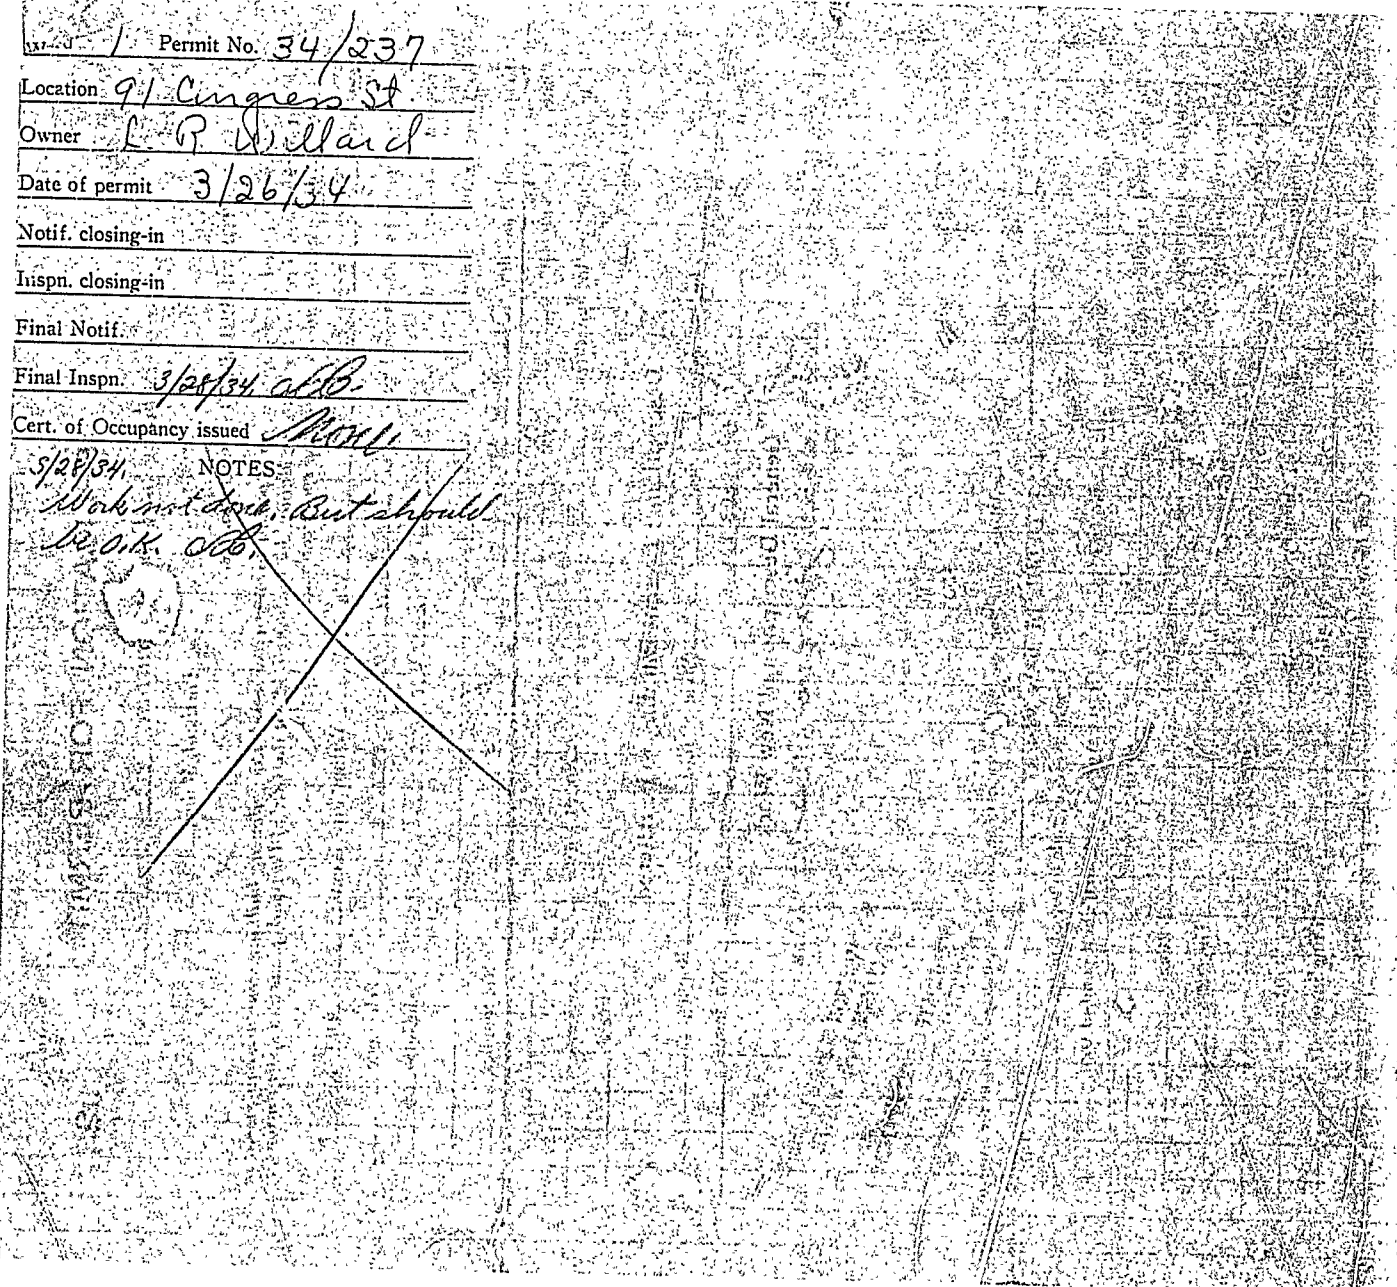 Ward 1 Permit No. 34/237
Location 91 Congress St.
Owner L R Willard
Date of permit 3/26/34
Notif. closing-in
Inspn. closing-in
Final Notif.
Final Inspn. 3/28/34.
Cert. of Occupancy issued None
3/28/34. NOTES
Work not done. But should
be O.K.